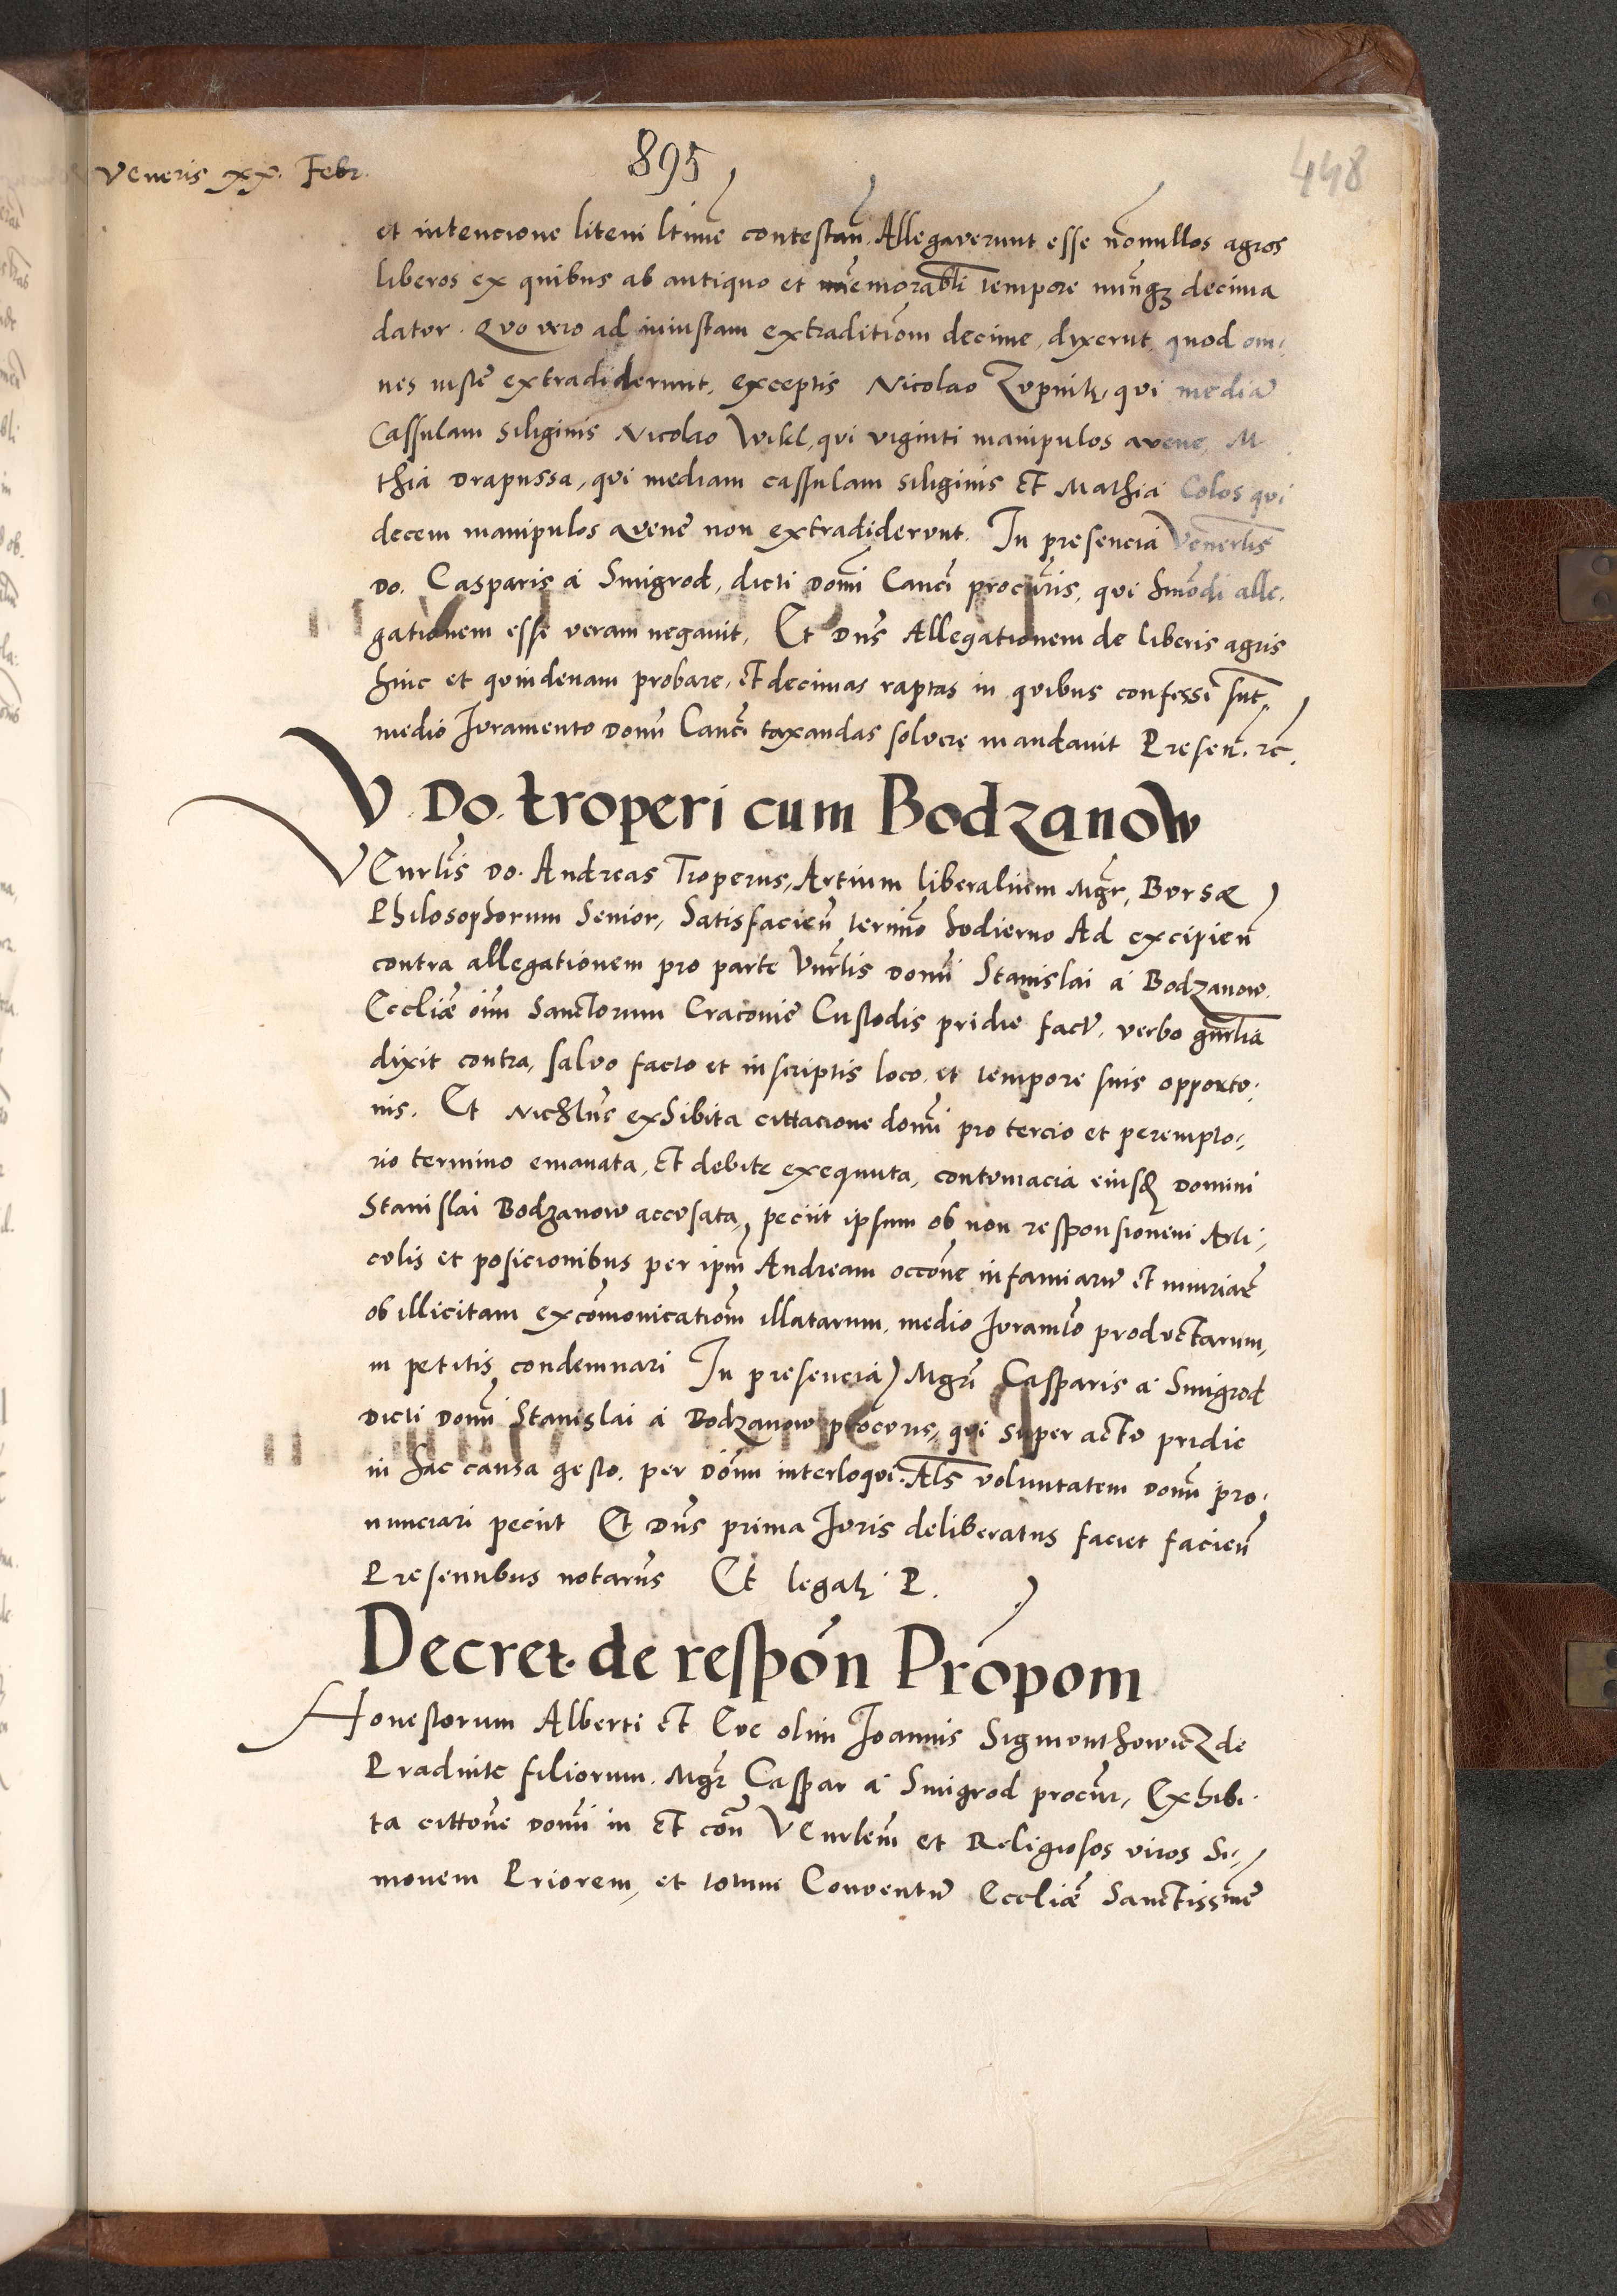 Veneris xx. Febr.
895
448
et intencione litem ltime contestan. Allegaverunt esse nonnullos agros
liberos ex quibus ab antiquo et memorabli tempore nunqz decima
datur. Quo vero ad iniustam extraditiom decime, dixerut, quod om:
nes iuste extradiderunt, exceptis Nicolao Zupnik, qui mediā
Cassulam siliginis Nicolao Wikl, qui viginti manipulos avene, M
thia Drapussa, qui mediam cassulam siliginis et Mathia Colos qui
decem manipulos avene non extradiderunt. In presencia Venerlis
Do. Casparis a Smigrod, dicti Domi Canci procuris, qui hmodi alle.
gationem esse veram negauit, Et Dns Allegationem de liberis agris
hinc et quindenam probare, et decimas raptas in quibus confessi sut,
medio Juramento Domi Canci taxandas solvere mandauit Presen. rc.
V. Do. troperi cum Bodzanow
VEnrlis Do. Andreas Troperus, Artium liberalium Mgr, Bursæ
Philosophorum Senior, Satisfacien termno hodierno Ad excipien
contra allegationem pro parte Vnrlis Domi Stanislai a Bodzanow
Eccliæ oim Sanctorum Cracovien Custodis pridie factā, verbo gnrlia
dixit contra, salvo facto et in scriptis loco et tempore suis opportu:
nis. Et Nichlus exhibita cittacione domi pro tercio et perempto:
rio termino emanata, Et debite exequuta, contumacia eiusd Domini
Stanislai Bodzanow accusata, peciit ipsum ob non responsionem Arti:
culis et posicionibus per ipm Andream occone infamiarū et iniuriarū
ob illicitam excomonicatiom illatarum, medio Juramto productarum,
in petitis condemnari In presencia Mgri Casparis a Smigrod
Dicti Domi Stanislai a Bodzanow procuris, qui super acto pridie
in hac causa gesto, per Domm interloqui. Als voluntatem Domi pro:
nunciari peciit Et Dns prima Juris deliberatus faciet facien
Presentibus notariis Et legal P.
Decret. de respon Propom
Honestorum Alberti et Eve olim Joannis Sigmunthowicz de
Pradnik filiorum. Mgr Caspar a Smigrod procur, Exhibi
ta cittone Domi in et con VEnrlem et Religiosos viros Si:
monem Priorem, et totum Conventū Eccliæ Sanctissme